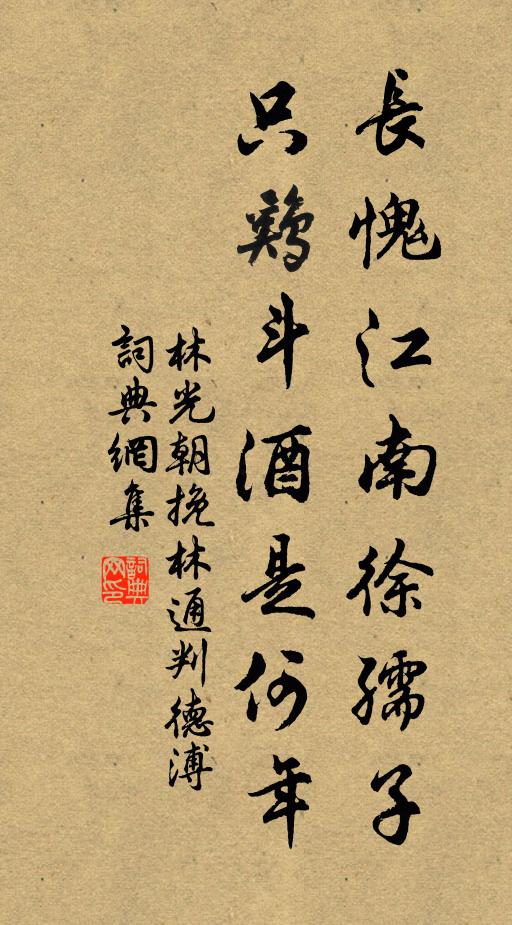 長愧江南徐孺子
只鷄斗酒是何年
林光朝挽林通判德溥
詞典網集
詞典網印